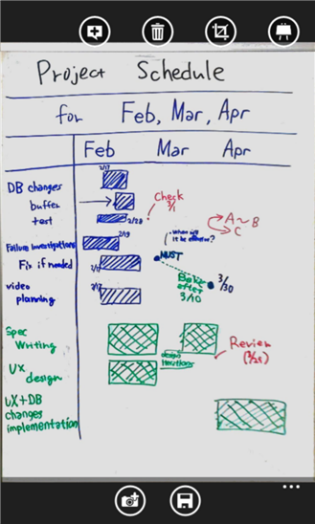 Project Schedule
for Feb, Mar, Apr
Feb Mar Apr
DB changes
buffer
test
2/28
Check
3/1
A ~ B
C
Failure investigations
2/19
Fix if needed
MUST
Beta
after
3/10
3/30
video
planning
Spec
Writing
UX
design
design
iterations
Review
UX + DB
changes
implementation